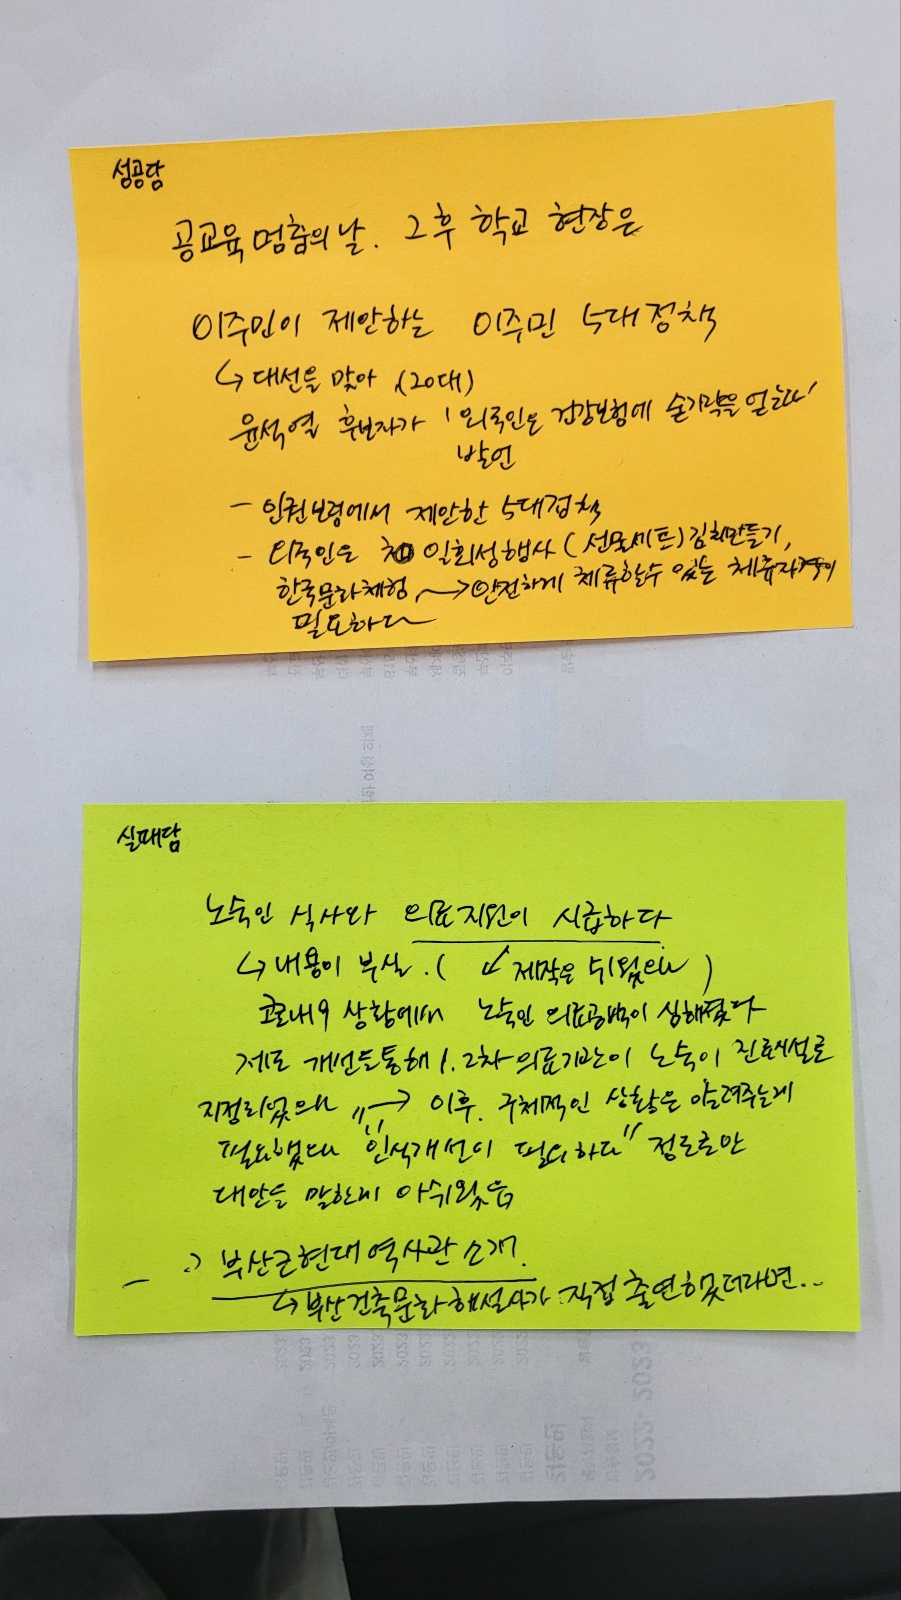 성공담
공교육 멈춤의 날. 그 후 학교 현장은
이주민이 제안하는 이주민 5대정책
↳ 대선을 맞아 (20대)
윤석열 후보자가 '외국인은 건강보험에 숟가락을 얹는다'
발언
- 인권보령에서 제안한 5대정책
- 외국인은 일회성행사 (선물세트) 김치만들기,
한국문화체험 → 안전하게 체류할수 있는 체류자격이
필요하다
실패담
노숙인 식사와 의료지원이 시급하다
↳ 내용이 부실. ( 제작은 쉬웠으나 )
코로나19 상황에서 노숙인 의료공백이 심해졌다
제도 개선을 통해 1, 2차 의료기관이 노숙인 진료시설로
지정되었으나 → 이후. 구체적인 상황을 알려주는게
필요했으나 "인식개선이 필요하다" 정도로만
대안을 말한게 아쉬웠음
- 부산근현대역사관 소개.
↳ 부산건축문화해설사가 직접 출연했더라면...